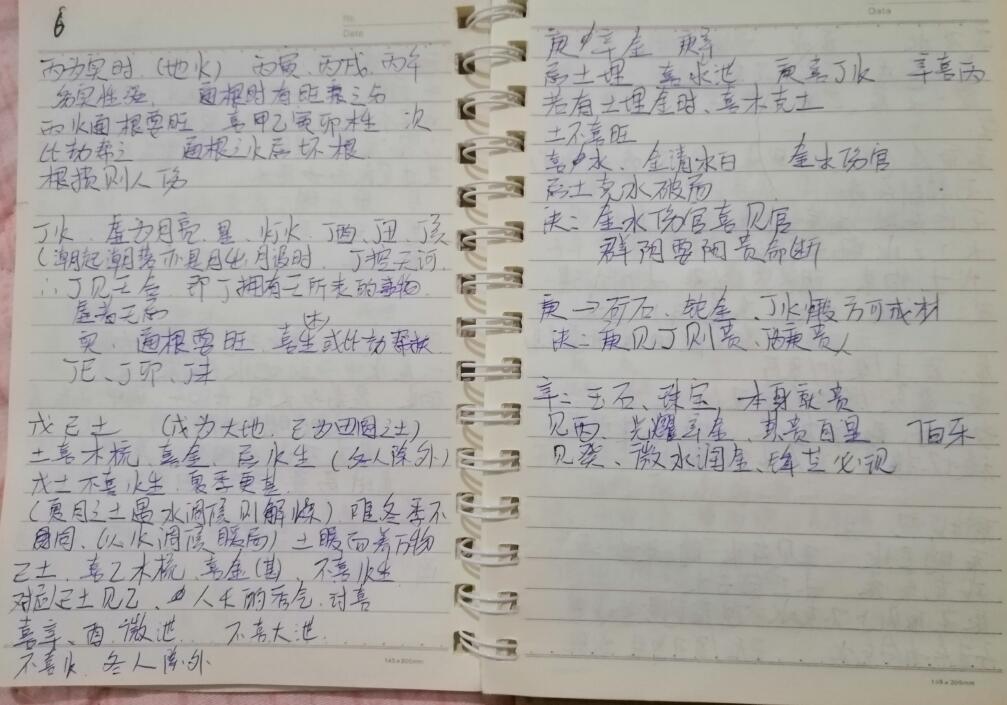 6
No.
Date
丙为实时（地火） 丙寅、丙戌、丙午
为实性逢、 通根时有旺衰之分
丙火通根要旺 喜甲乙寅卯木生 次
比劫帮之 通根之火忌坏根
根损则人伤
丁火、虚为月亮、星、灯火、丁酉、丁丑、丁亥
（潮起潮落亦是月出月没时、丁挂天河
∴丁见壬合 即丁拥有壬所表的事物
虚者无
实、通根要旺、喜生(木)或比劫帮扶
丁巳、丁卯、丁未
戊己土 （戊为大地、己为田园之土）
土喜木梳、喜金、忌火生（冬人除外）
戊土不喜火生、夏季更甚
（夏月之土遇水调候则解燥）唯冬季不
同、（以火调候暖局）土暖而养万物
己土、喜乙木梳、喜金(甚)、不喜火生
己土见乙、人生的秀气、对喜
喜辛、酉 微泄 不喜大泄
不喜火、冬人除外
145×205mm
Date
庚辛金 庚辛
忌土埋 喜水泄 庚喜丁火 辛喜丙
若有土埋金时、喜木克土
土不喜旺
喜水、金清水白 金水伤官
忌土克水破局
决：金水伤官喜见官
群阴要阳贵命断
庚→矿石、钝金、丁火煅方可成材
决：庚见丁则贵、阳庚贵人
辛：玉石、珠宝、本身就贵
见丙、光耀辛金、其贵自显、伯乐
见癸、微水润金、锋芒必现
145×205mm